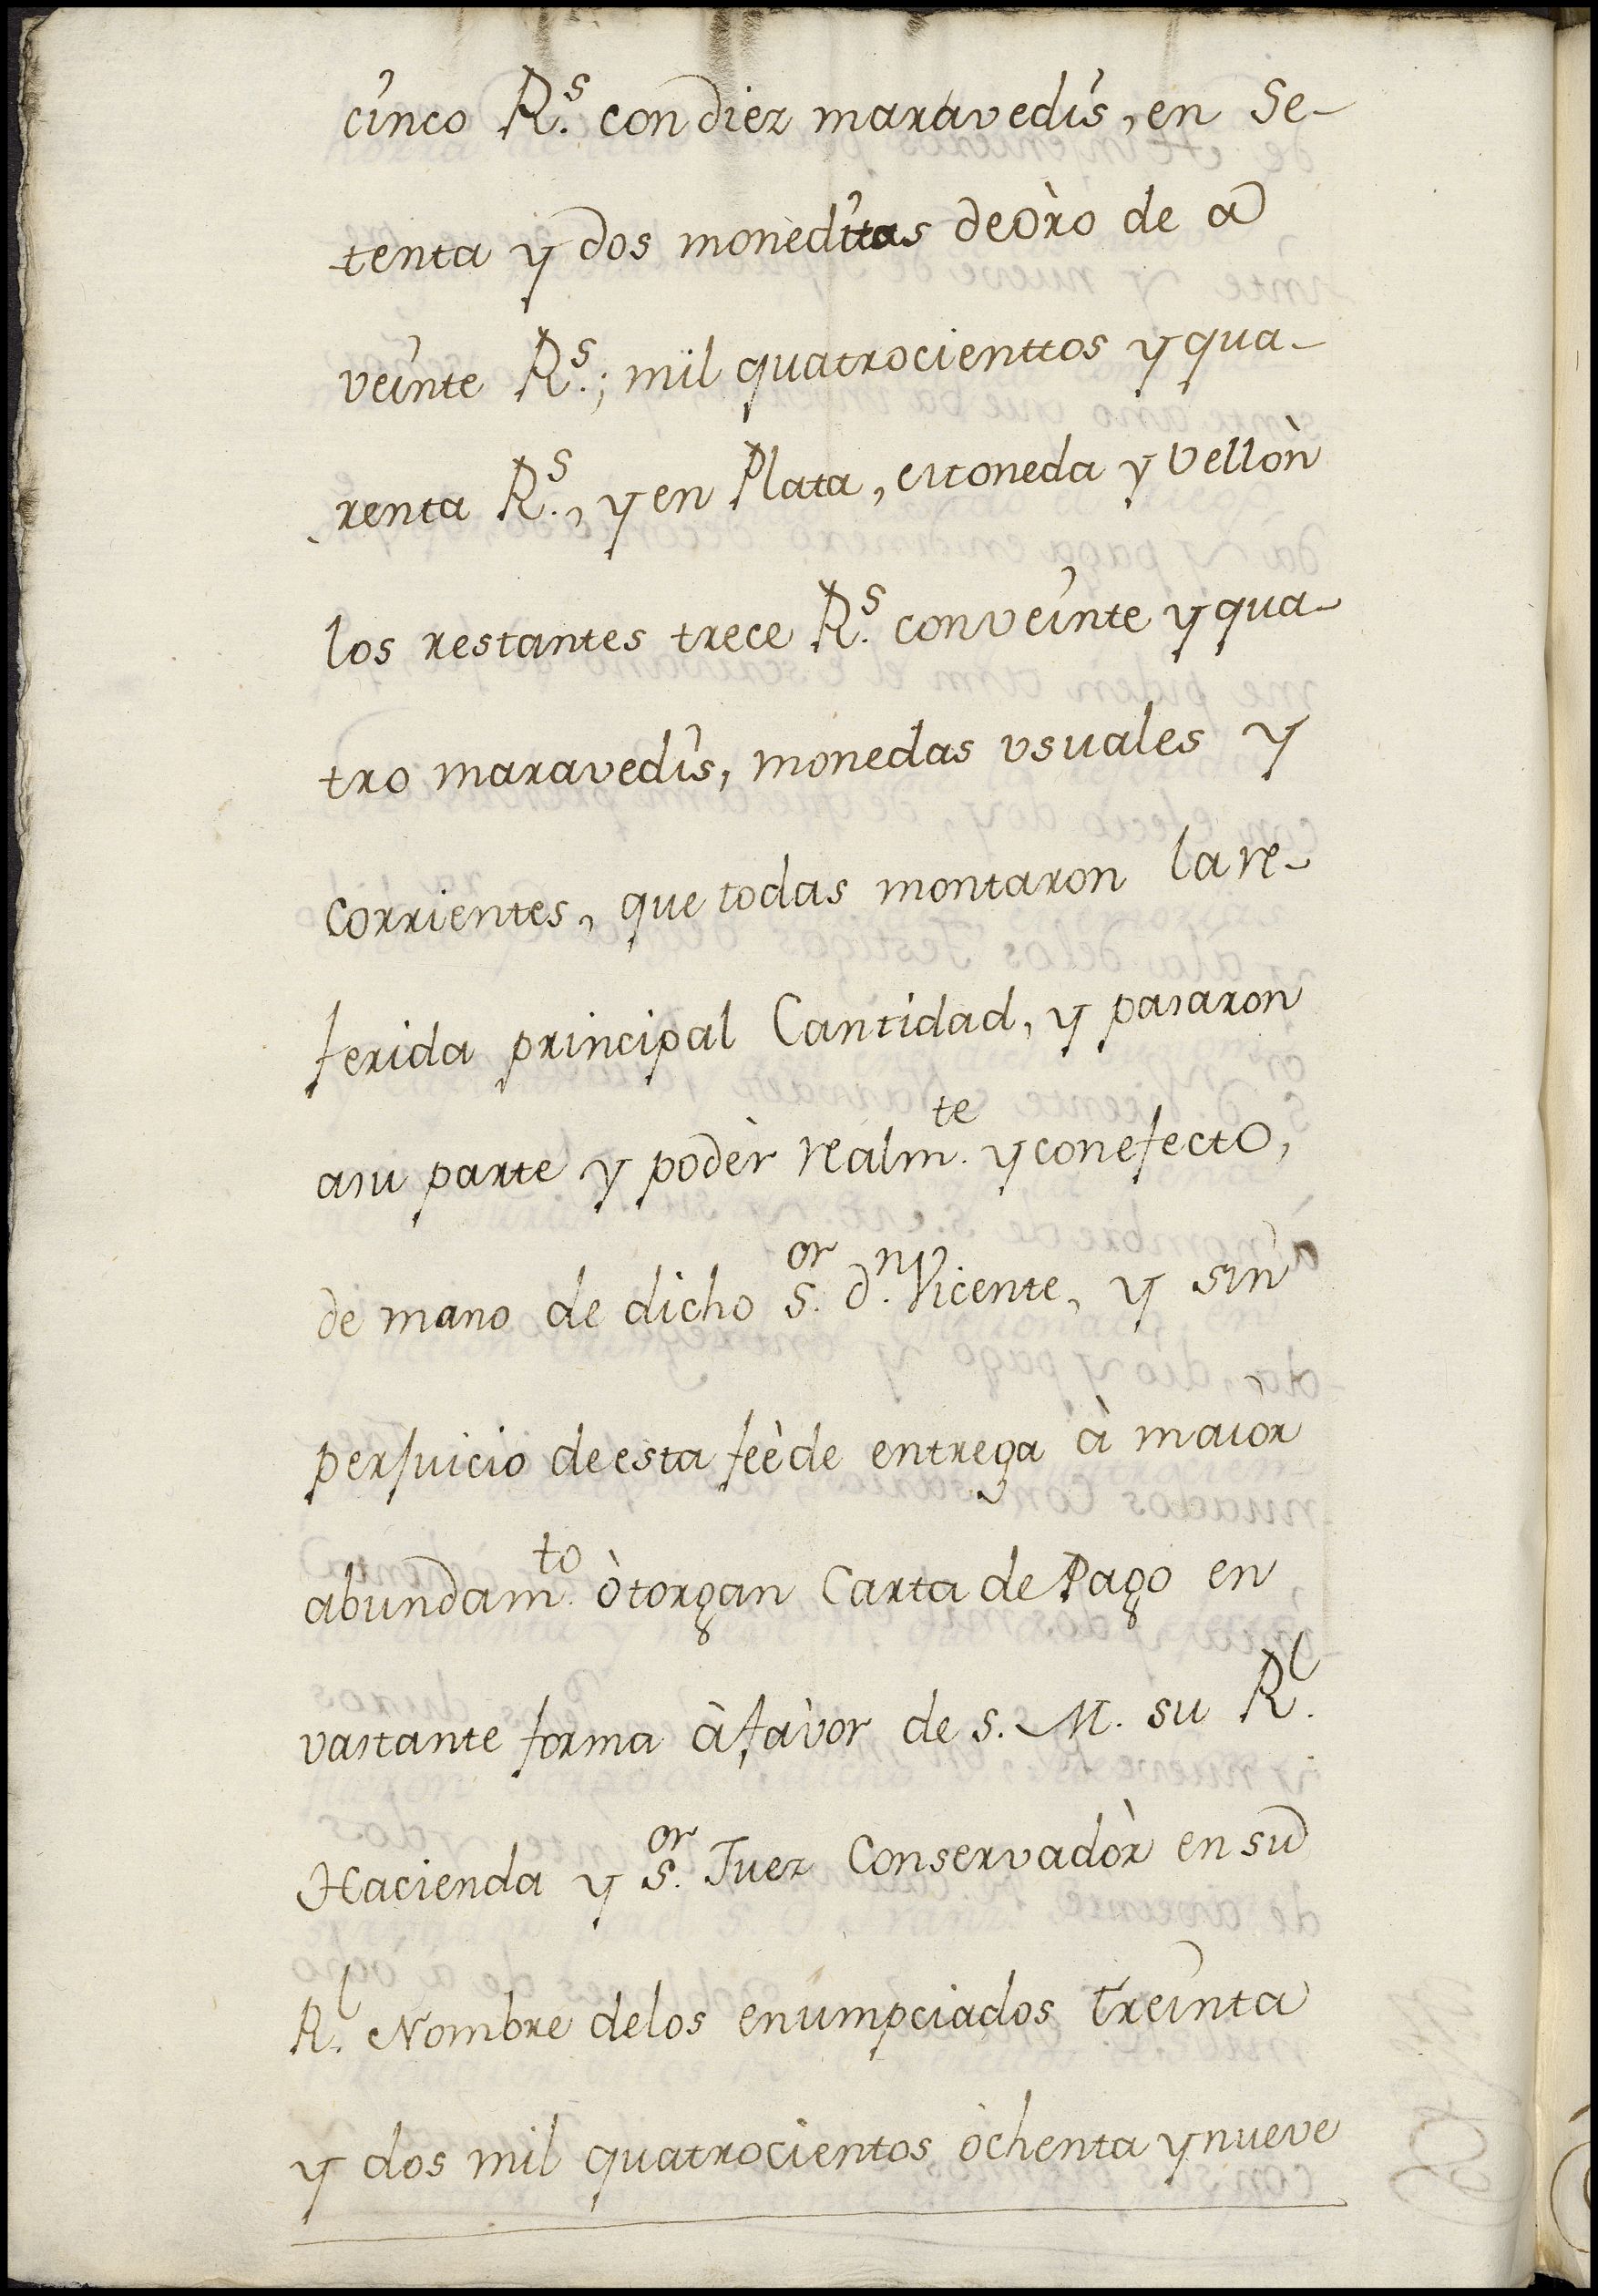 cinco R.s con diez maravedis, en Se-
tenta y dos moneditas de òro de a
veinte R.s; mil quatrocienttos y qua-
renta R.s, y en Plata, Moneda y Vellòn
los restantes trece R.s con veinte y qua-
tro maravedis, monedas usuales y
corrientes, que todas montaron la re-
ferida principal Cantidad, y pasaron
asu parte y podèr realm.te y con efecto,
de mano de dicho s.or d.n Vicente, y sin
perjuicio de esta feè de entrega à maior
abundam.to òtorgan Carta de Pago en
vastante forma à favor de S. M. su R.l
Hacienda y s.or Juez Conservadòr en su
R.l Nombre delos enumpciados treinta
y dos mil quatrocientos òchenta y nueve